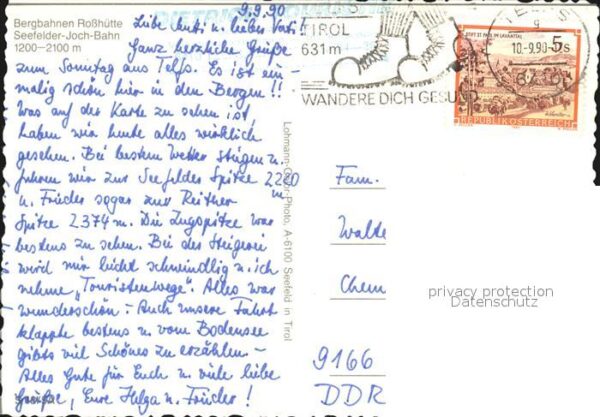 Bergbahnen Roßhütte
Seefelder-Joch-Bahn
1200–2100 m
9.9.90
Liebe Mutti u. lieber Vati!
Ganz herzliche Grüße
zum Sonntag aus Telfs. Es ist ein-
malig schön hier in den Bergen!!
Was auf der Karte zu sehen ist,
haben wir heute alles wirklich
gesehen. Bei bestem Wetter stiegen u.
fuhren wir zur Seefelder Spitze 2220 m
u. Frieder sogar zur Reither
Spitze 2374 m. Die Zugspitze war
bestens zu sehen. Bei der Steigerei
wird mir leicht schwindlig u. ich
nehme „Touristenwege". Alles war
wunderschön. – Auch unsere Fahrt
klappte bestens u. vom Bodensee
gibts viel Schönes zu erzählen. –
Alles Gute für Euch u. viele liebe
Grüße, Eure Helga u. Frieder!
Lohmann-Color-Photo, A-6100 Seefeld in Tirol
TIROL
631 m
WANDERE DICH GESUND
10.-9.90
STIFT ST. PAUL IM LAVANTTAL
5 S
REPUBLIK ÖSTERREICH
Fam.
Walde
Chem
9166
DDR
privacy protection
Datenschutz